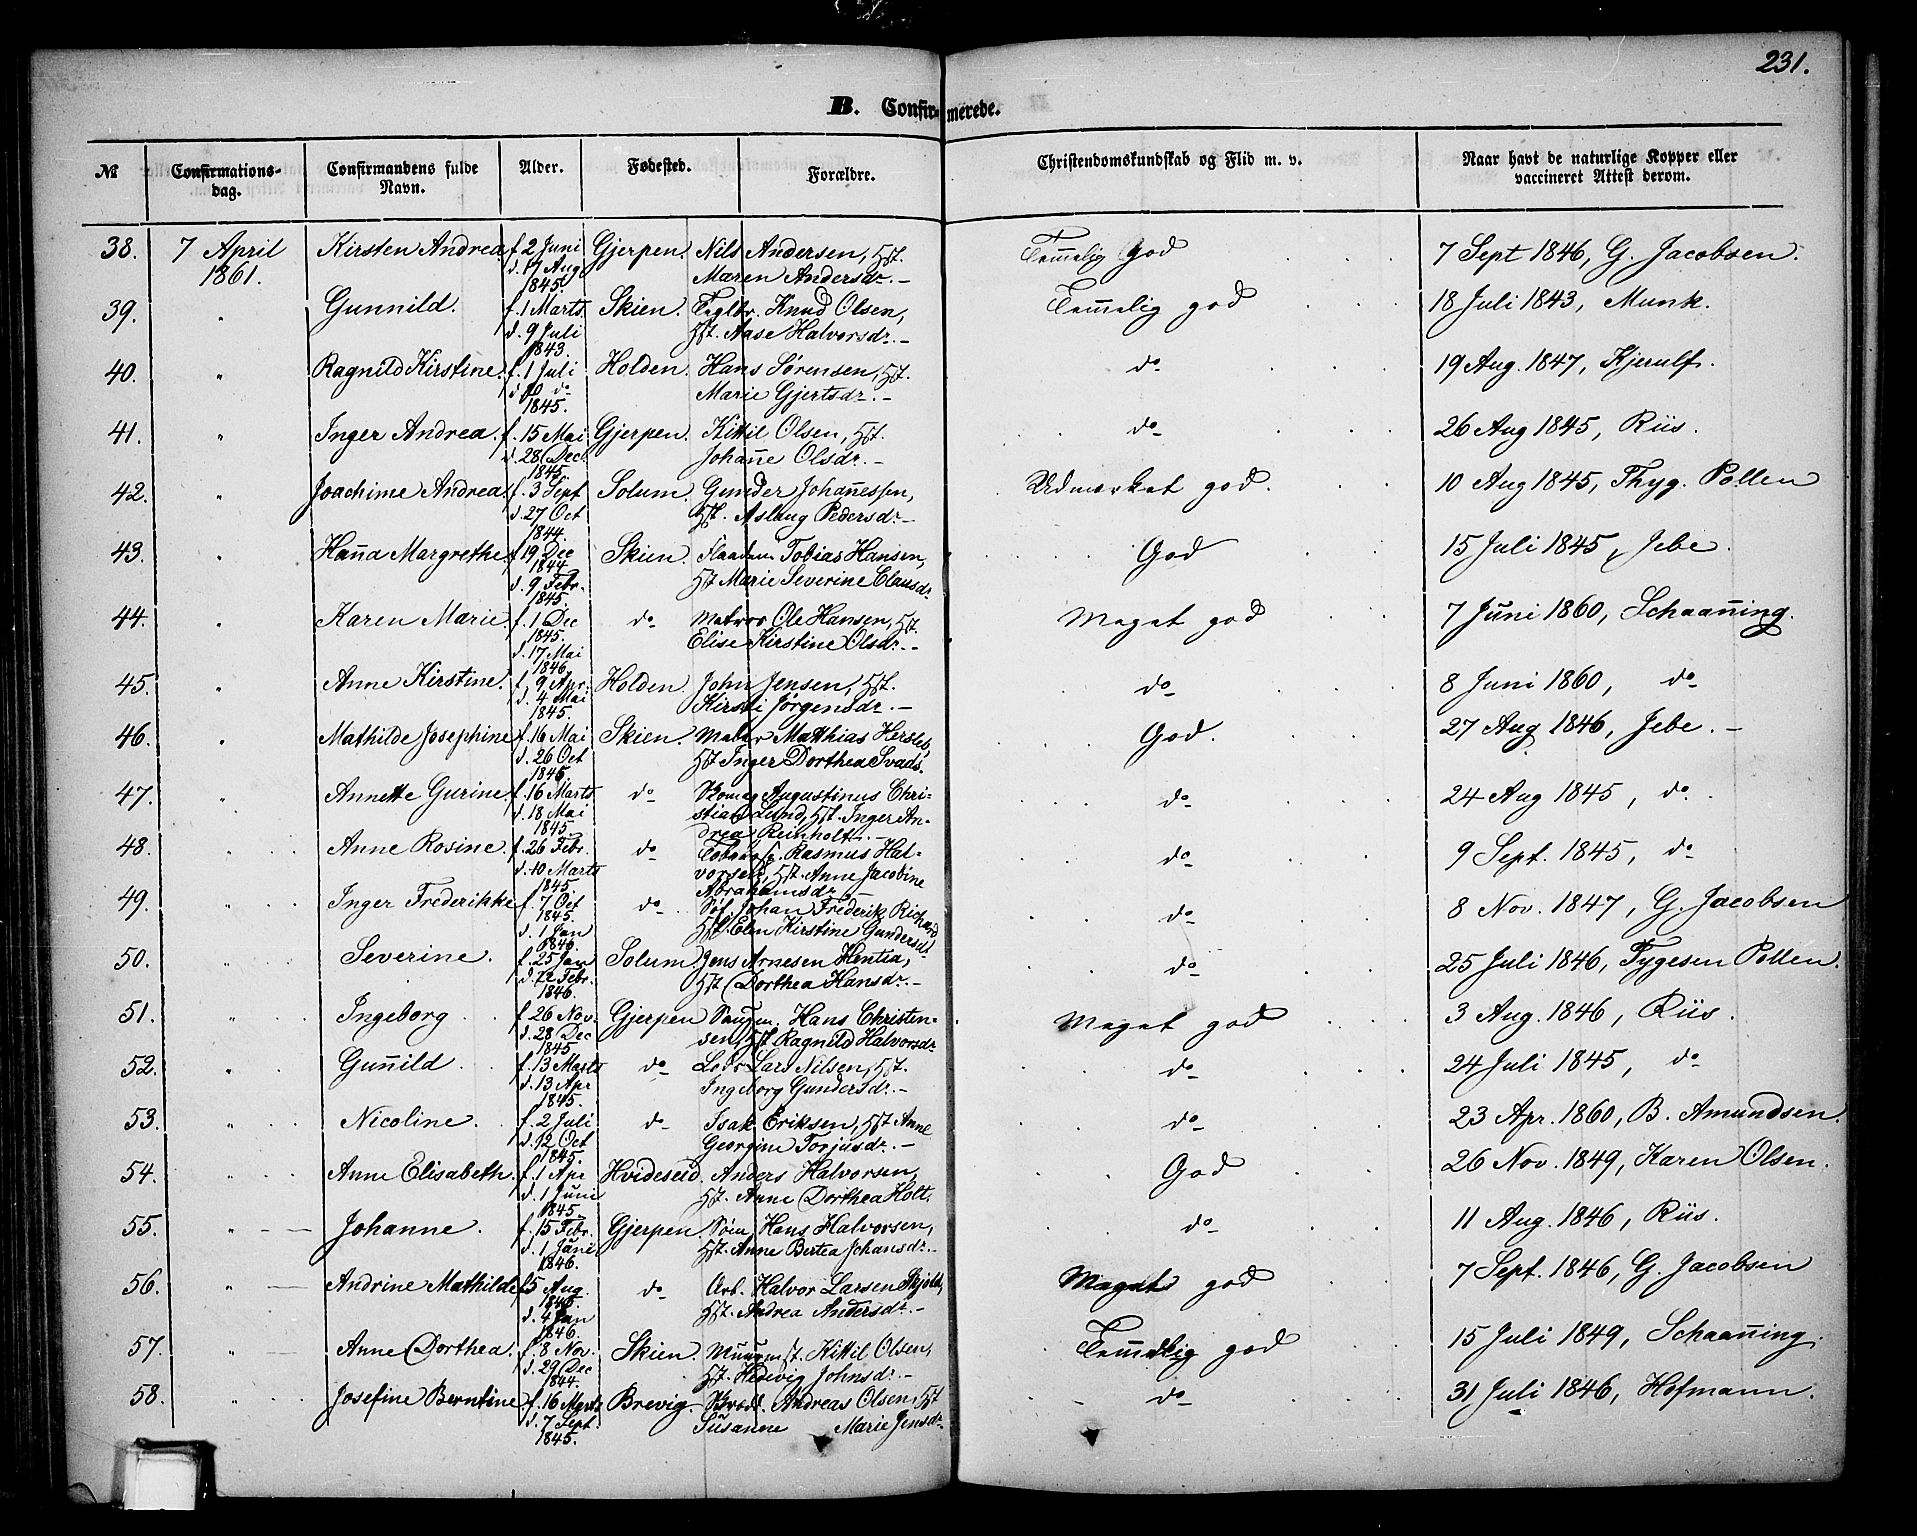 231.
B. Confirmerede.
№ Confirmations-dag. Confirmandens fulde Navn. Alder. Fødested. Forældre. Christendomskundskab og Flid m. v. Naar havt de naturlige Kopper eller vaccineret Attest derom.
38. 7 April Kirsten Andrea f. 2 Juni Gjerpen. Nils Andersen, Hst. Temmelig god 7 Sept 1846, G. Jacobsen.
1861. d. 17 Aug Maren Andersdr. –
1845.
39. " Gunnild. f. 1 Marts Skien. Teglbr. Knud Olsen, Temmelig god 18 Juli 1843, Munk.
d. 9 Juli Hst. Aase Halvorsdr. –
1843.
40. " Ragnild Kirstine. f. 1 Juli Holden. Hans Sørensen, Hst. do 19 Aug. 1847, Kjerulf.
d. do Marie Gjertsdr. –
1845.
41. " Inger Andrea. f. 15 Mai Gjerpen. Kittil Olsen, Hst. do 26 Aug 1845, Riis.
d. 28 Dec. Johan̄e Olsdr. –
1845.
42. " Joachime Andrea. f. 3 Sept Solum. Gunder Johan̄essen, Udmærket god. 10 Aug 1845, Thyg. Pollen
d. 27 Oct Hst. Aslaug Pedersdr. –
1844.
43. " Han̄a Margrethe. f. 19 Dec Skien. Tobias Hansen, God 15 Juli 1845, Jebe.
1844
d. 9 Febr. Hst Marie Severine Clausdr.
1845.
44. " Karen Marie. f. 1 Dec do Matros Ole Hansen, Hst. Meget god 7 Juni 1860, Schaan̄ing.
1845.
d. 17 Mai Elise Kirstine Olsdr. –
1846.
45. " Anne Kirstine. f. 9 Apr. Holden. John Jensen, Hst. do 8 Juni 1860, do
d. 4 Mai Kirsti Jørgensdr. –
1845.
46. " Mathilde Josephine f. 16 Mai Skien. Maler Matthias Hersleb, God. 27 Aug 1846, Jebe. –
d. 26 Oct Hst Inger Dorthea Svads.
1845.
47. " Annette Gurine f. 16 Marts do Augustinus Chri- do 24 Aug 1845, do
d. 18 Mai stian Lund, Hst. Inger An-
1845. drea Reinholt. –
48. " Anne Rosine. f. 26 Febr. do Rasmus Hal- do 9 Sept. 1845, do
d. 10 Marts vorsen, Hst. Anne Jacobine
1845 Abrahamsdr. –
49. " Inger Frederikke f. 7 Oct do Søf. Johan Frederik Richard do 8 Nov. 1847, G. Jacobsen
1845.
d. 1 Jan Hst. Elen Kirstine Gundersdr.
1846.
50. " Severine. f. 25 Jan Solum Jens Arnesen Hentia, do 25 Juli 1846, Tygesen Pollen.
d. 22 Febr. Hst Dorthea Hansdr. –
1846.
51. " Ingeborg f. 26 Nov. Gjerpen Hans Christen- Meget god 3 Aug. 1846, Riis.
d. 28 Dec sen, Hst Ragnild Halvorsdr
1845
52. " Gun̄ild f. 13 Marts do Lars Nilsen, Hst. do 24 Juli 1845, do
d. 13 Apr Ingeborg Gundersdr. –
1845.
53. " Nicoline. f. 2 Juli do Isak Eriksen, Hst Anne do 23 Apr. 1860, B. Amundsen.
d. 12 Oct Georgine Torjusdr. –
1845.
54. " Anne Elisabeth. f. 1 Apr Hvideseid Anders Halvorsen, God 26 Nov. 1849, Karen Olsen.
d. 1 Juni Hst. Anne Dorthea Holt.
1845.
55. " Johanne. f. 15 Febr. Gjerpen. Hans Halvorsen, do 11 Aug. 1846, Riis.
d. 1 Juni Hst. Anne Bertea Johansdr. –
1846.
56. " Andrine Mathilde f. 5 Aug. do Arb. Halvor Larsen Skjold, Meget god 7 Sept. 1846, G. Jacobsen
1845.
d. 4 Jan Hst. Andrea Andersdr. –
1846.
57. " Anne Dorthea. f. 8 Nov. Skien. Muurmst. Kittil Olsen, Temmelig god 15 Juli 1849, Schaan̄ing.
d. 29 Dec Hst. Hedevig Johnsdr. –
1844.
58. " Josefine Berntine. f. 16 Marts Brevig. Andreas Olsen, Hst do 31 Juli 1846, Hofmann.
d. 7 Sept Susanne Marie Jensdr
1845.